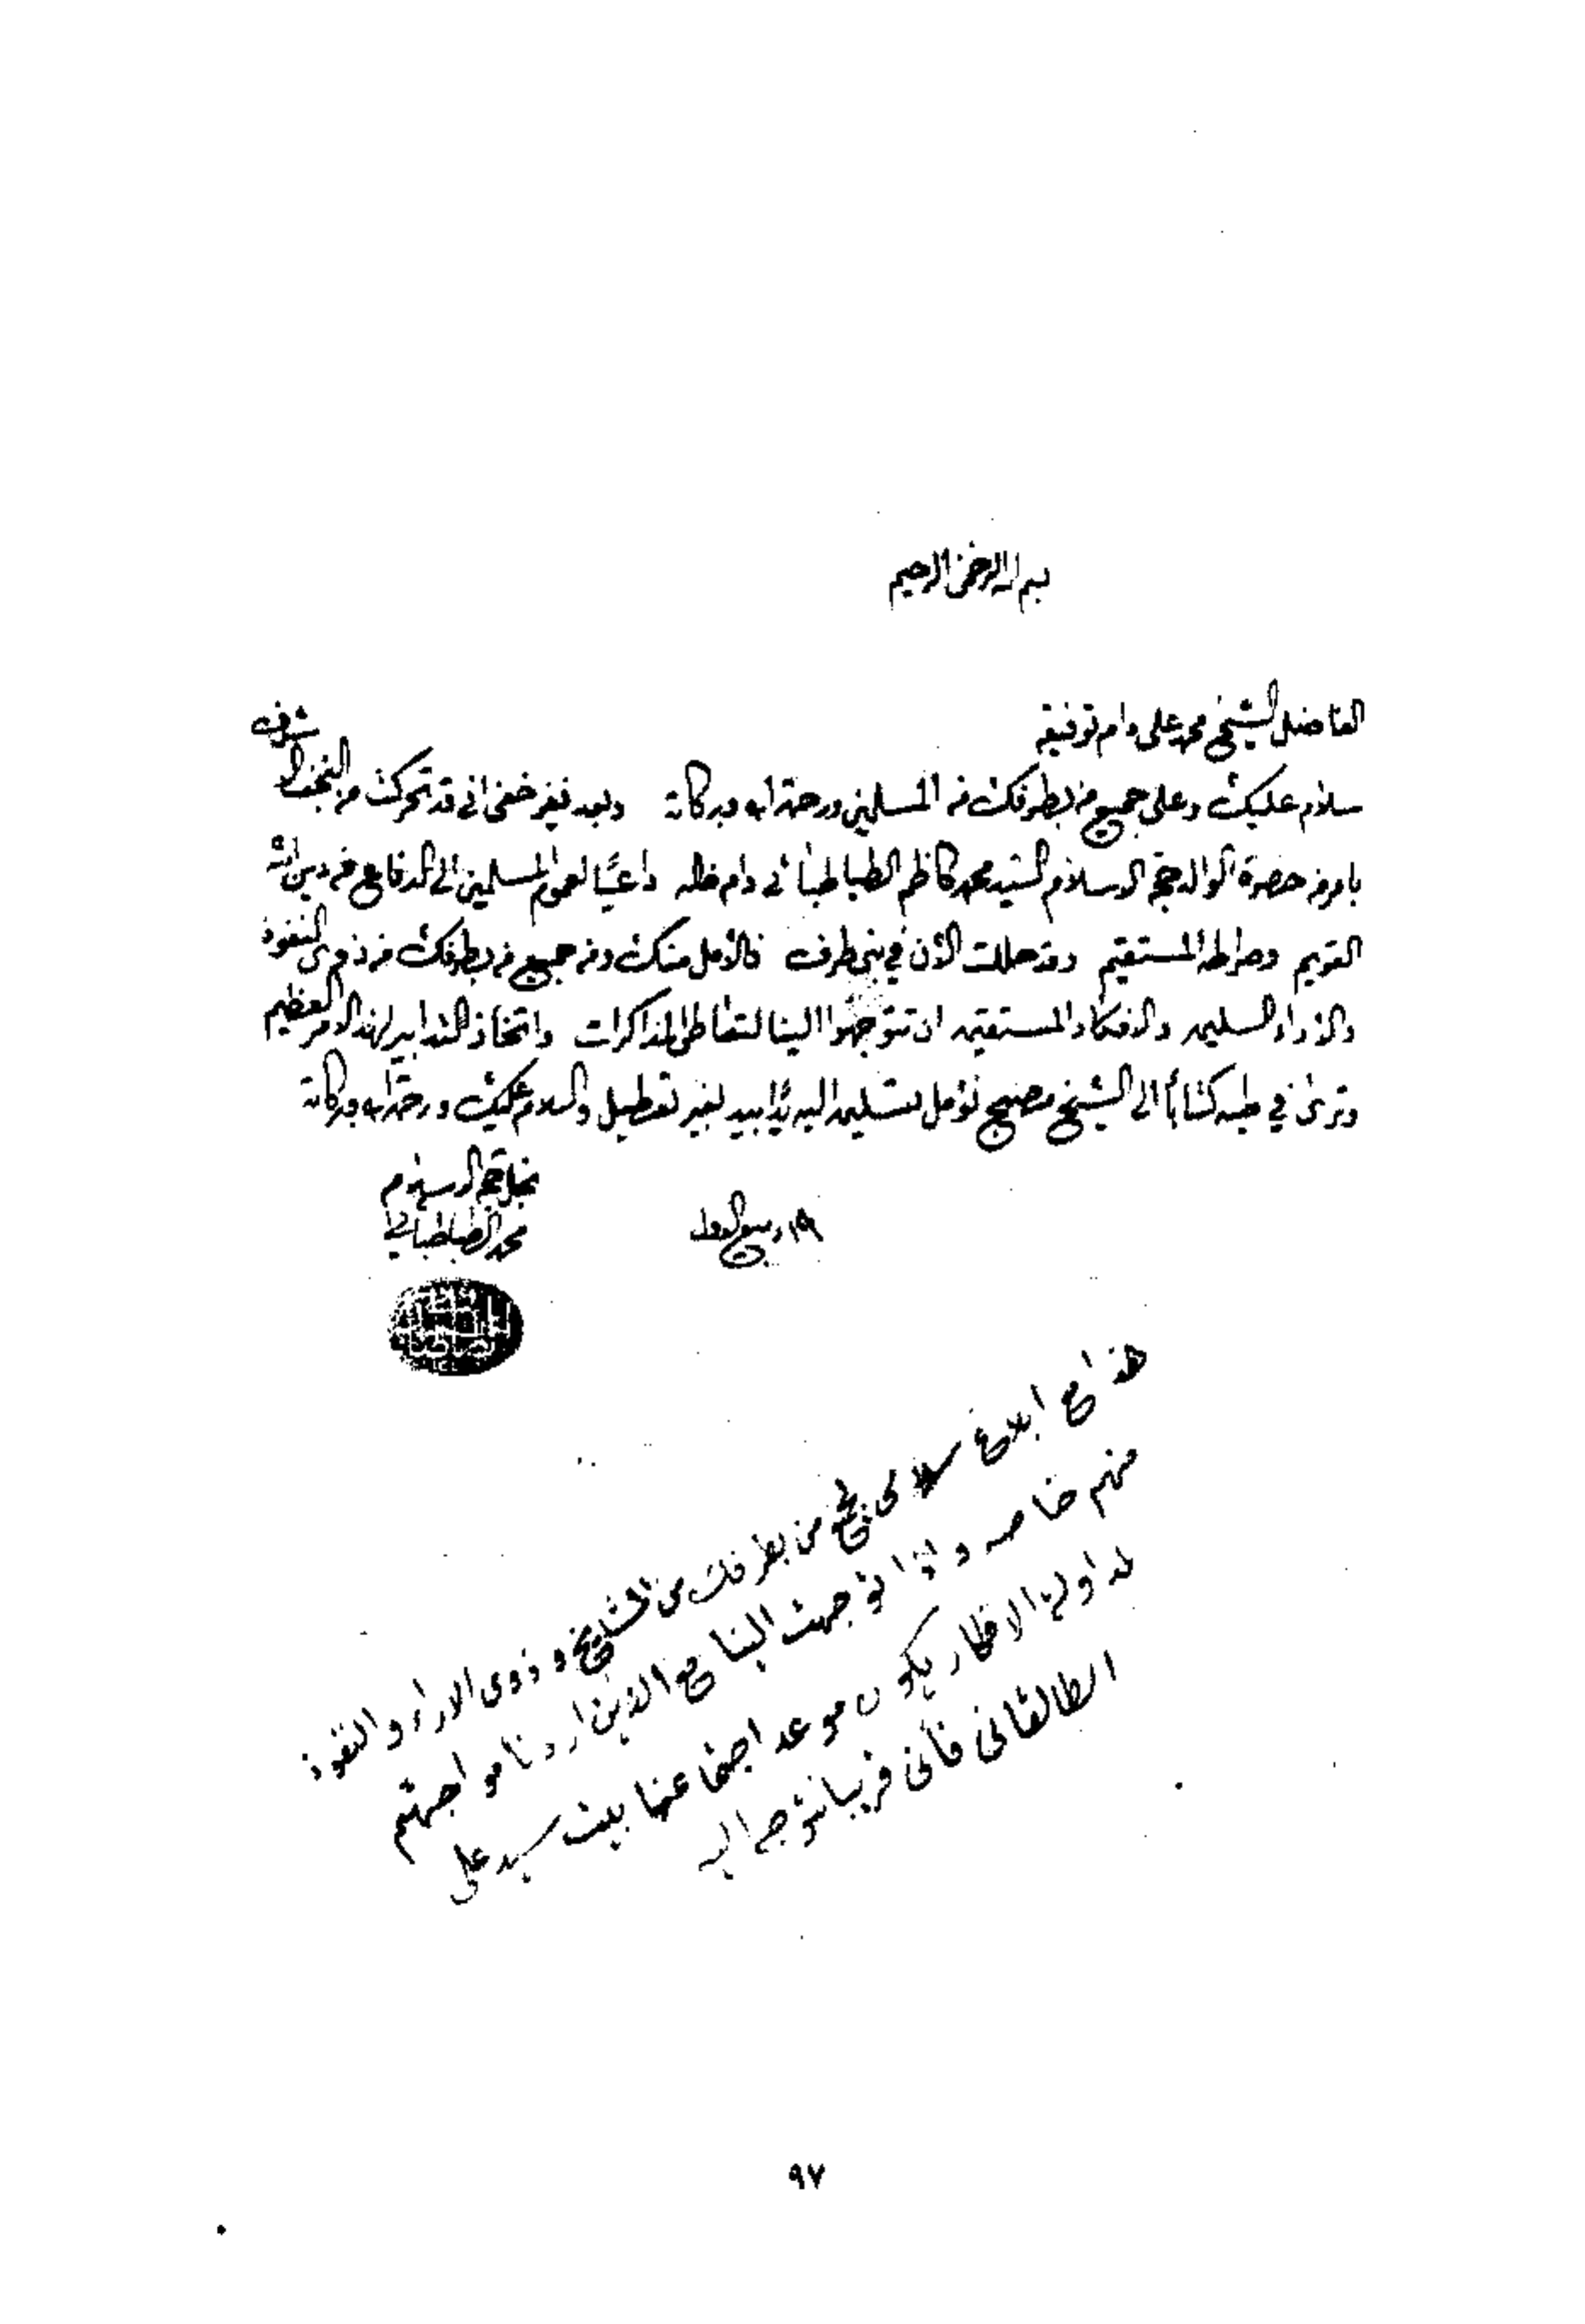 بسم الله الرحمن الرحيم
الفاضل الشيخ محمد علي دام توفيقه
سلام عليك وعلى جميع من بطرفك من المسلمين ورحمة الله وبركاته وبعد فغير خفي اني قد تحركت من النجف الاشرف
بامر من حضرة الوالد حجة الاسلام السيد محمد كاظم الطباطبائي دام ظله داعيًا لعموم المسلمين الى الدفاع عن دين الله
القويم وصراطه المستقيم وقد حللت الآن في بني طرف فالأمل منك ومن جميع من بطرفك من ذوي النفوذ
والآراء السليمه والافكار المستقيمه ان تتوجهوا الينا لتعاطي المذاكرات واتخاذ التدابير لهذا الامر العظيم
وترى في طيه كتابًا الى الشيخ مصبح نؤمل تسليمه اليه يدًا بيد بغير تعطيل والسلام عليك ورحمة الله وبركاته
نجل حجة الاسلام
محمد الطباطبائي
١٨ ربيع الاول
هذا مع ابلاغ سلامي جميع من بطرفك من المشايخ وذوي الاراء والنفوذ
منهم خاصه و توجهت الينا مع الذين اردنا مواجهتهم
الافكار يكون موعد اجتماعنا بيت سيد علي
الطالقاني فأني قريبا نتوجه اليه
٩٧